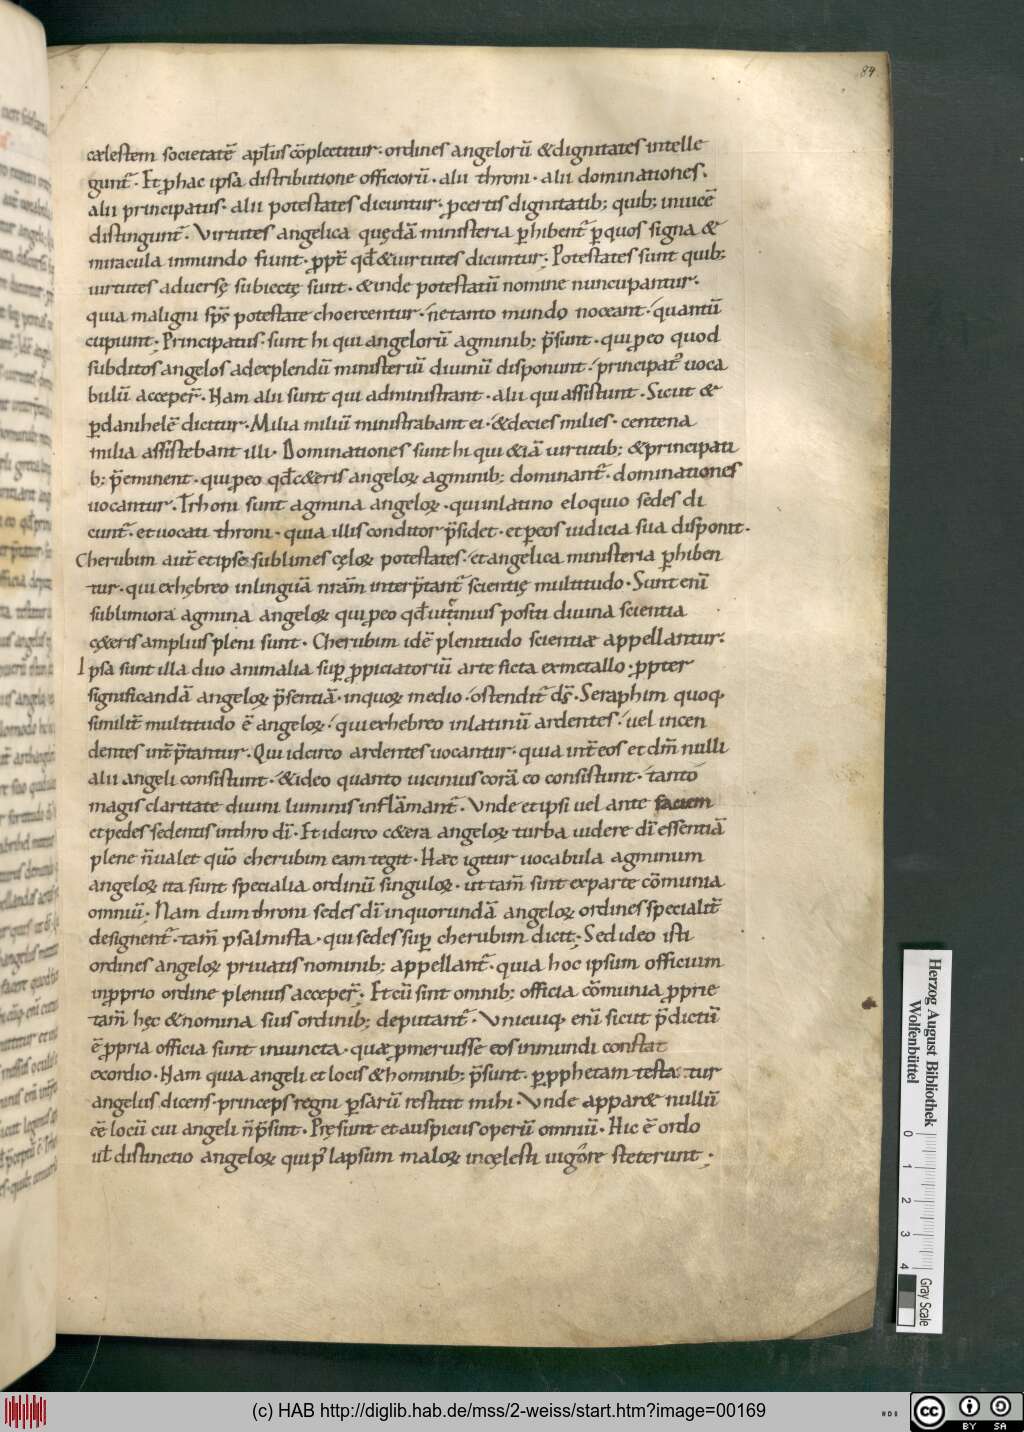 84
cælestem societatē apl̄us cō plectitur· ordines angelorū &dignitates intelle
gunt̄· Et p hac ipsa distributione officiorū· alii throni· alii dominationes·
alii principatus· alii potestates dicuntur· p certis dignitatib; quib; inuicē
distingunt̄· Virtutes angelica quędā ministeria phibent̄ p quos signa &
miracula inmundo fiunt· ppt̄ qd̄ &uirtutes dicuntur; Potestates sunt quib;
uirtutes aduersę subiectę sunt· &inde potestatū nomine nuncupantur·
quia maligni sps̄ potestate choercentur· ne tanto mundo noceant· quantū
cupiunt; Principatus· sunt hi qui angelorū agminib; p̄sunt· qui p eo quod
subditos angelos adexplendū ministeriū diuinū disponunt· principat᾽ uoca
bulū acceper̄· Nam alii sunt qui administrant· alii qui assistunt· Sicut &
p danihelē dicitur· Milia miliū ministrabant ei· &decies milies· centena
milia assistebant illi· Dominationes sunt hi qui &iā uirtutib; &principati
b; p̄eminent· qui p eo qd̄ c&eris angeloꝝ agminib; dominant̄· dominationes
uocantur· Throni sunt agmina angeloꝝ· qui inlatino eloquio sedes di
cunt̄· et uocati throni· quia illis conditor p̄sidet· et p eos iudicia sua disponit·
Cherubim aut̄ et ipse sublimes cęloꝝ potestates· et angelica ministeria phiben
tur· qui exhębreo inlinguā nrām interp̄tant̄ scientię multitudo· Sunt enī
sublimiora agmina angeloꝝ qui p eo qd̄ uicinius positi diuina scientia
c&eris amplius pleni sunt· Cherubim idē plenitudo scientiæ appellantur·
Ipsa sunt illa duo animalia sup ppiciatoriū arte ficta exmetallo· ppter
significandā angeloꝝ p̄sentiā· inquoꝝ medio· ostendit̄ ds̄· Seraphim quoq·
similit̄ multitudo ē angeloꝝ· qui exhebreo inlatinū ardentes· uel incen
dentes int̄p̄tantur· Qui idcirco ardentes uocantur· quia int̄ eos et dm̄ nulli
alii angeli consistunt· &ideo quanto uicinius corā eo consistunt· tanto
magis claritate diuini luminis inflāmant̄· Vnde et ipsi uel ante faciem
et pedes sedentis inthro dī· Et idcirco c&era angeloꝝ turba uidere dī essentiā
plene n̄ ualet quō cherubim eam tegit· Hæc igitur uocabula agminum
angeloꝝ ita sunt specialia ordinū singuloꝝ· ut tam̄ sint exparte cōmunia
omniū; Nam dum throni sedes dī inquorundā angeloꝝ ordines specialit̄
designent̄· tam̄ psalmista· qui sedes sup cherubim dicit; Sed ideo isti
ordines angeloꝝ priuatis nominib; appellant̄· quia hoc ipsum officium
inpprio ordine plenius acceper̄· Et cū sint omnib; officia cōmunia pprie
tam̄ hęc &nomina suis ordinib; deputant̄· Vnicuiq· enī sicut p̄dictū
ē ppria officia sunt iniuncta· quæ p meruisse eos inmundi constat
exordio· Nam quia angeli et locis &hominib; p̄sunt· p pphetam testa tur
angelus dicens· princeps regni p sarū restitit mihi· Vnde appar& nullū
eē locū cui angeli n̄ p̄sint· Pręsunt et auspicus operū omniū· Hic ē ordo
ul̄ distinctio angeloꝝ qui p᾽ lapsum maloꝝ incęlesti uigore steterunt;
Herzog August Bibliothek
Wolfenbüttel
0 1 2 3 4
Gray Scale
(c) HAB http://diglib.hab.de/mss/2-weiss/start.htm?image=00169
HAB
cc BY SA